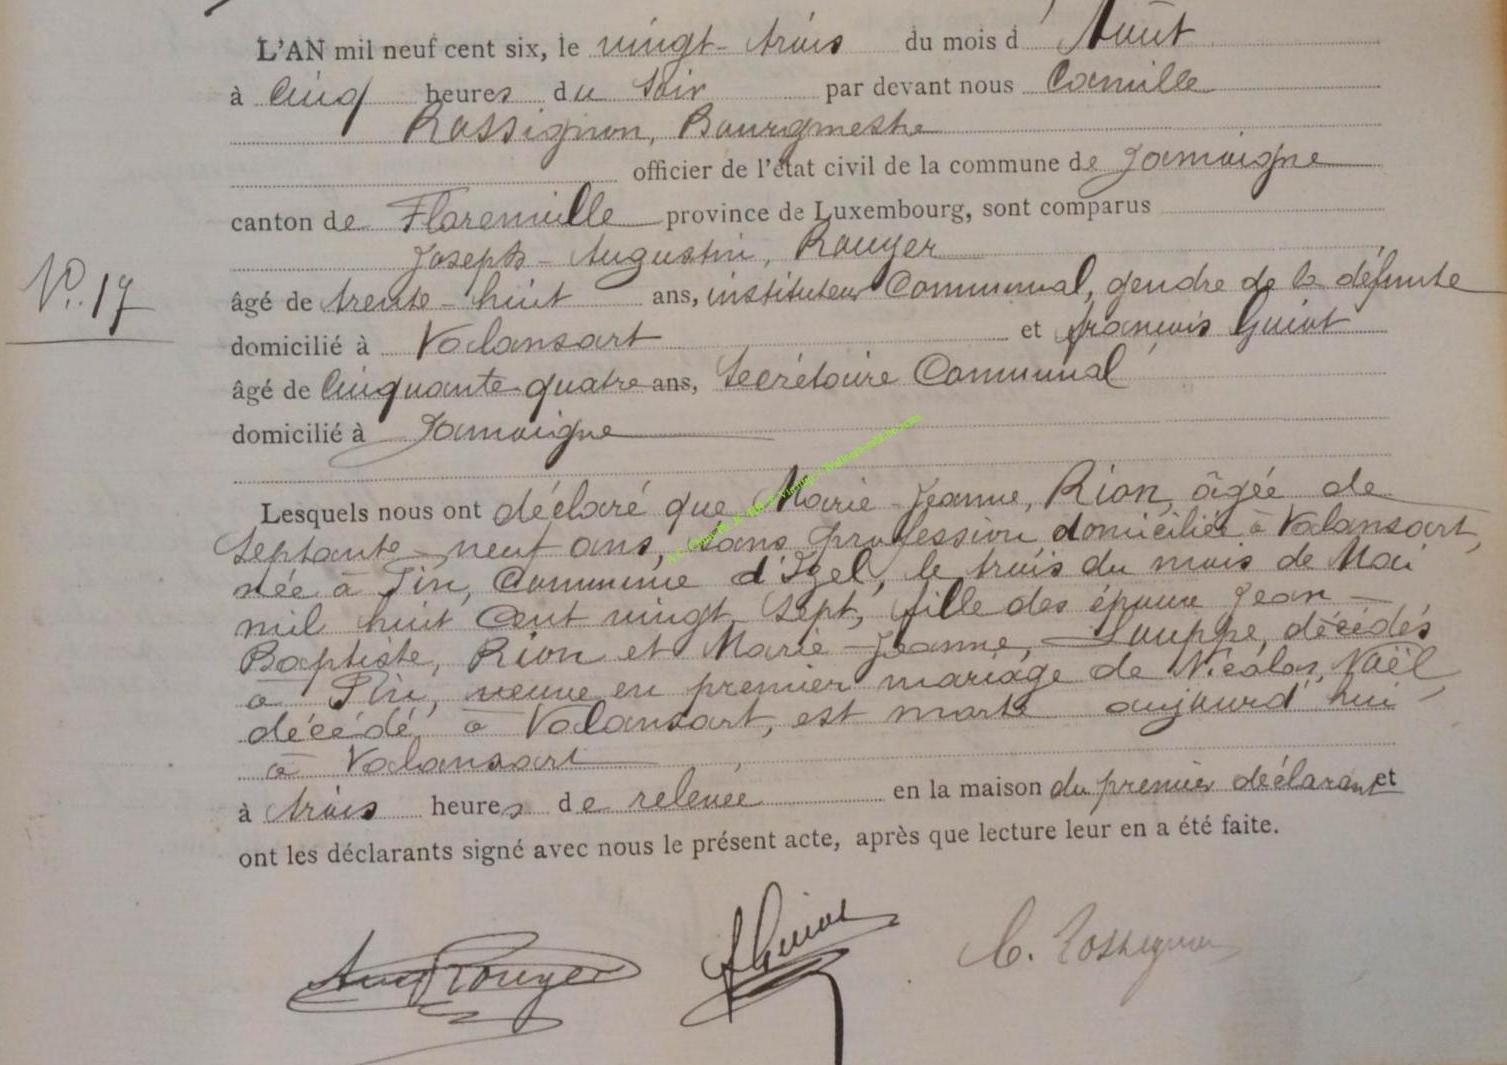 L'AN mil neuf cent six, le vingt-trois du mois d'Août
à cinq heures du soir par devant nous Camille
Rossignon, Bourgmestre
officier de l'état civil de la commune de Jamoigne
canton de Florenville province de Luxembourg, sont comparus
Joseph-Augustin, Rouyer
âgé de trente-huit ans, instituteur Communal, gendre de la défunte
N°. 17
domicilié à Valansart et françois Guiot
âgé de Cinquante-quatre ans, Secrétaire Communal
domicilié à Jamoigne
Lesquels nous ont déclaré que Marie-Jeanne, Rion, âgée de
Septante-neuf ans, sans profession domiciliée à Valansart,
née à Pin, Commune d'Izel, le trois du mois de Mai
mil huit Cent vingt Sept, fille des époux Jean-
Baptiste, Rion et Marie-Jeanne, Louppe, décédés
à Pin, veuve en premier mariage de Nicolas, Naël,
décédé, à Valansart, est morte aujourd'hui
à Valansart
à trois heures de relevée en la maison du premier déclarant et
ont les déclarants signé avec nous le présent acte, après que lecture leur en a été faite.
Aug Rouyer f Guiot C. Rossignon